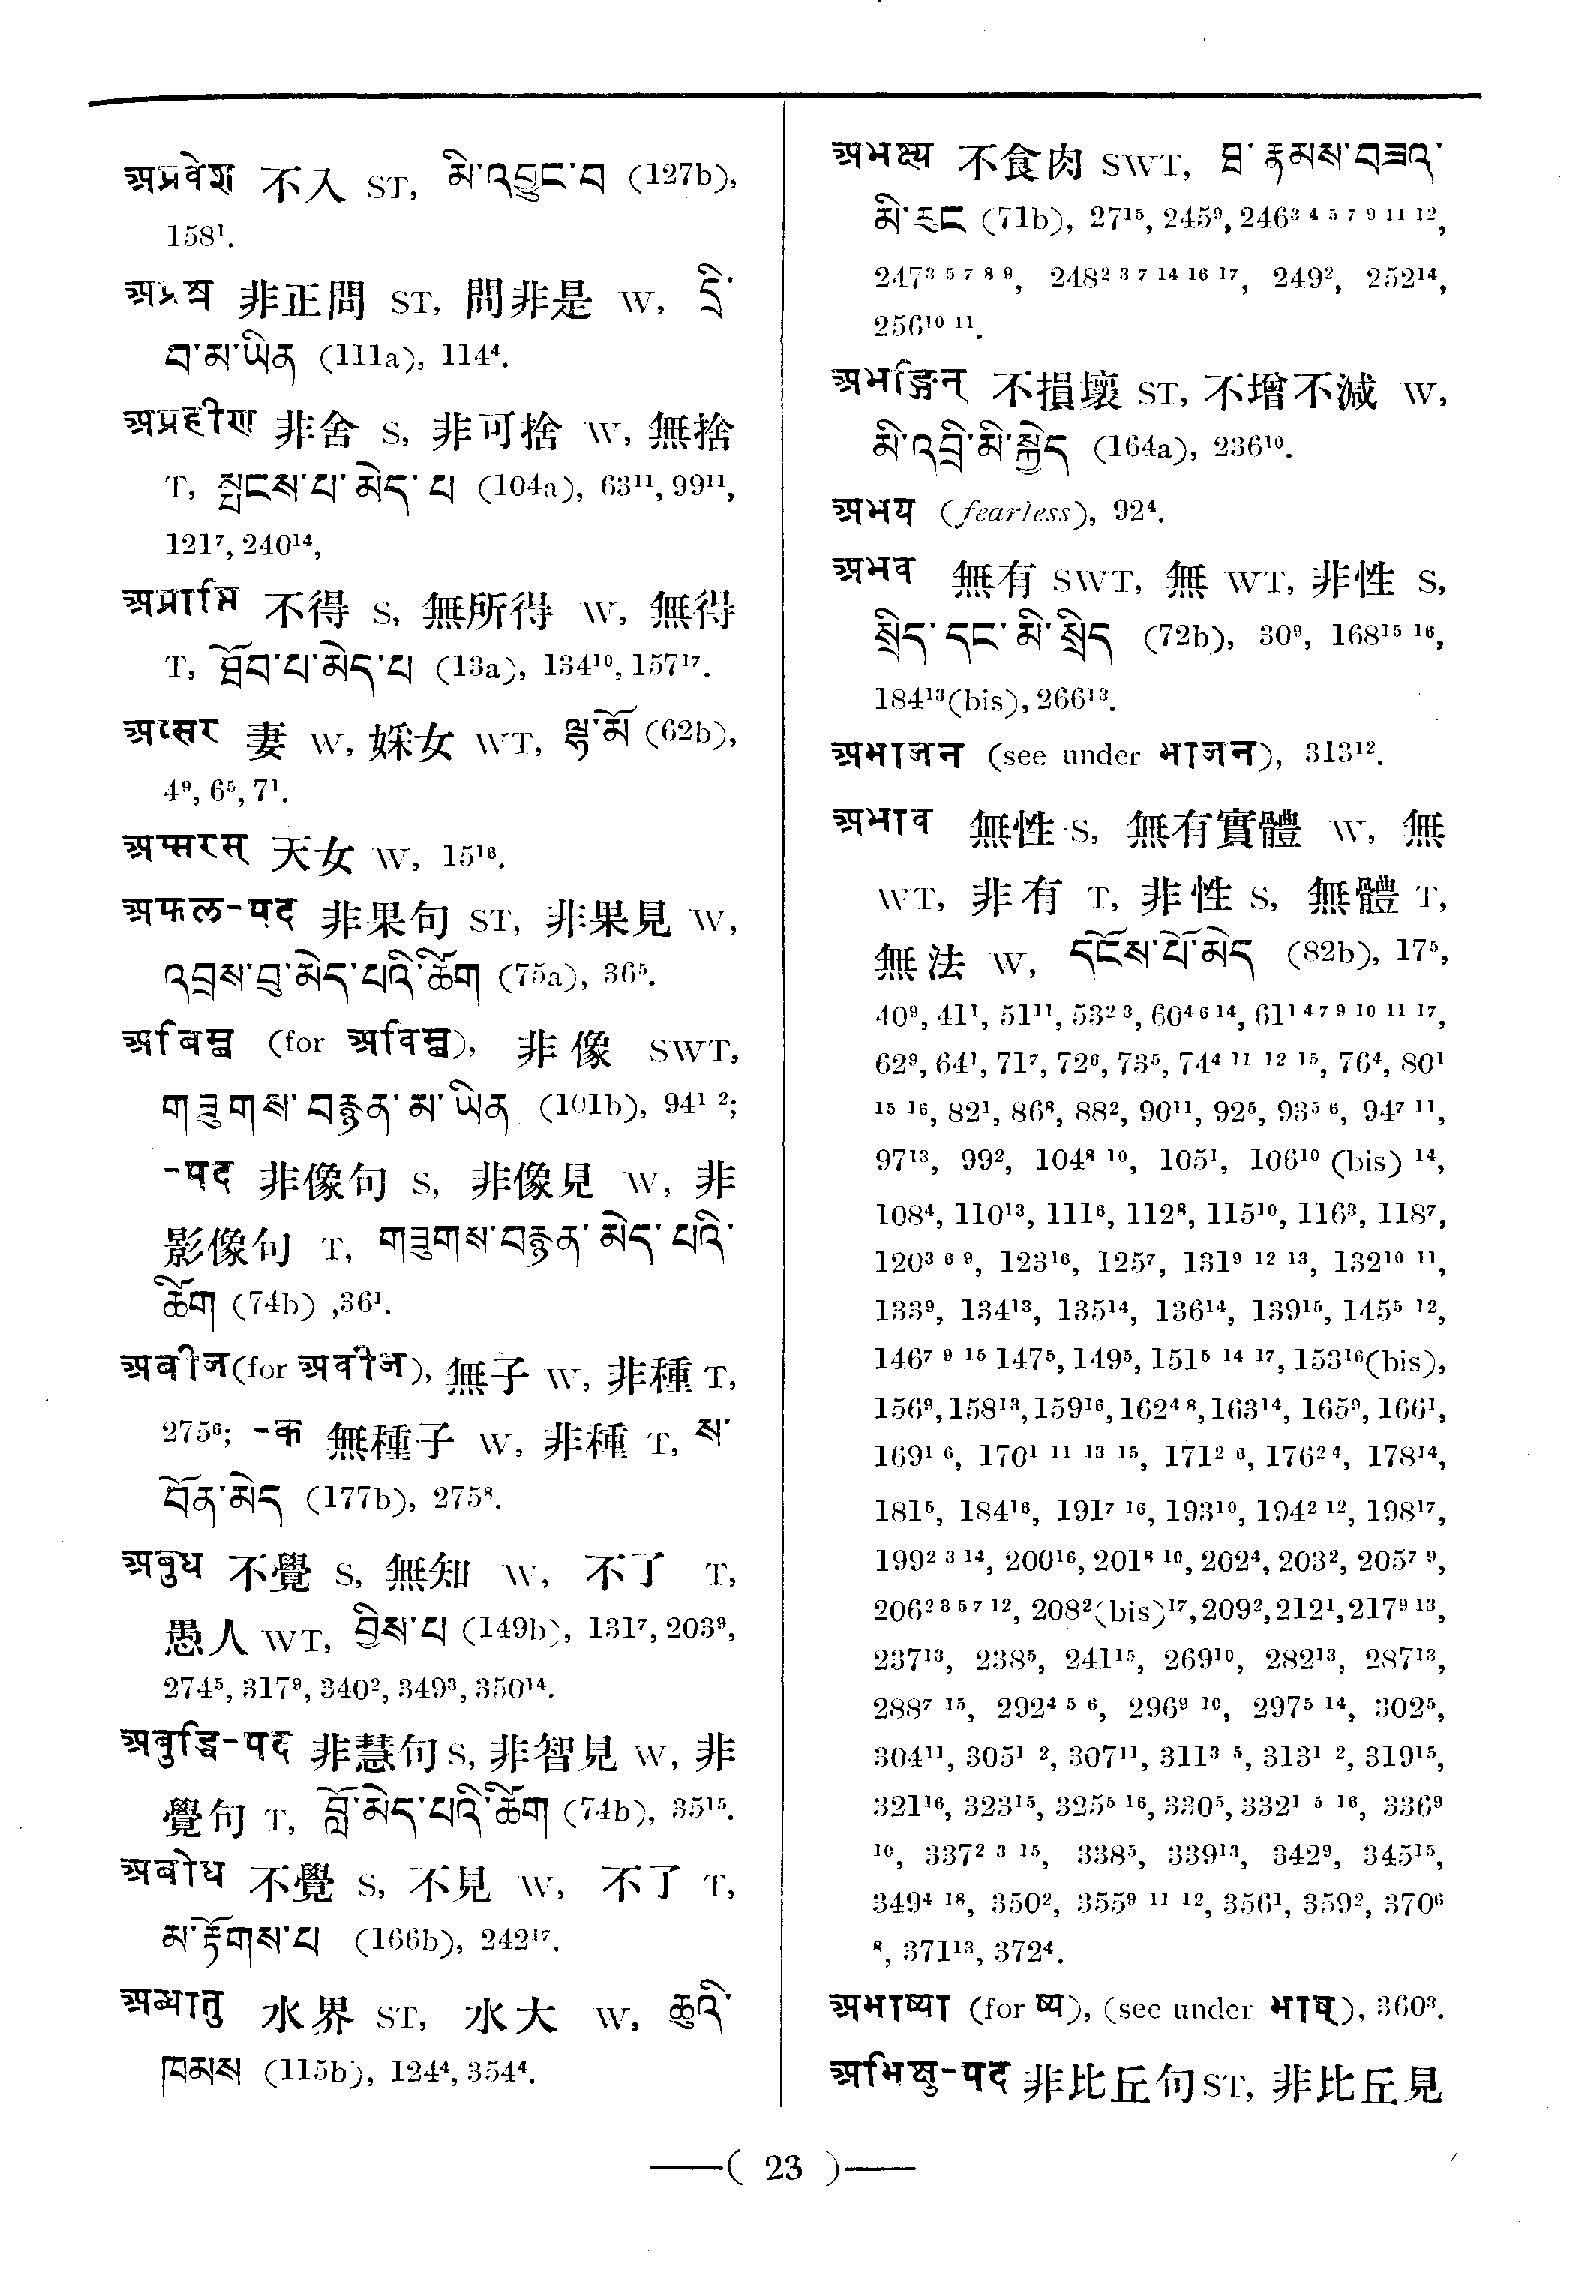 अप्रवेश 不入 ST, མི་འབྱུང་བ (127b),
158¹.
अप्रश्न 非正問 ST, 問非是 W, དྲི་
བ་མ་ཡིན (111a), 114⁴.
अप्रहीण 非舍 S, 非可捨 W, 無捨
T, སྤངས་པ་མེད་པ (104a), 63¹¹, 99¹¹,
121⁷, 240¹⁴,
अप्राप्ति 不得 S, 無所得 W, 無得
T, ཐོབ་པ་མེད་པ (13a), 134¹⁰, 157¹⁷.
अप्सर 妻 W, 婇女 WT, ལྷ་མོ (62b),
4⁹, 6⁵, 7¹.
अप्सरस् 天女 W, 15¹⁶.
अफल-पद 非果句 ST, 非果見 W,
འབྲས་བུ་མེད་པའི་ཚིག (75a), 36⁵.
अबिम्ब (for अविम्ब), 非像 SWT,
གཟུགས་བརྙན་མ་ཡིན (101b), 94¹ ²;
-पद 非像句 S, 非像見 W, 非
影像句 T, གཟུགས་བརྙན་མེད་པའི་
ཚིག (74b) ,36¹.
अबीज (for अवीज), 無子 W, 非種 T,
275⁶; -क 無種子 W, 非種 T, ས་
བོན་མེད (177b), 275⁸.
अबुध 不覺 S, 無知 W, 不了 T,
愚人 WT, བྱིས་པ (149b), 131⁷, 203⁹,
274⁵, 317⁹, 340², 349³, 350¹⁴.
अबुद्धि-पद 非慧句 S, 非智見 W, 非
覺句 T, བློ་མེད་པའི་ཚིག (74b), 35¹⁵.
अबोध 不覺 S, 不見 W, 不了 T,
མ་རྟོགས་པ (166b), 242¹⁷.
अब्धातु 水界 ST, 水大 W, ཆུའི་
ཁམས (115b), 124⁴, 354⁴.
अभक्ष्य 不食肉 SWT, ཐ་རྣམས་བཟའ་
མི་རུང (71b), 27¹⁵, 245⁹, 246³ ⁴ ⁵ ⁷ ⁹ ¹¹ ¹²,
247³ ⁵ ⁷ ⁸ ⁹, 248² ³ ⁷ ¹⁴ ¹⁶ ¹⁷, 249², 252¹⁴,
256¹⁰ ¹¹.
अभङ्गिन् 不損壞 ST, 不增不減 W,
མི་འབྲི་མི་སྐྱེད (164a), 236¹⁰.
अभय (fearless), 92⁴.
अभव 無有 SWT, 無 WT, 非性 S,
སྲིད་དང་མི་སྲིད (72b), 30⁹, 168¹⁵ ¹⁶,
184¹³(bis), 266¹³.
अभाजन (see under भाजन), 313¹².
अभाव 無性 S, 無有實體 W, 無
WT, 非有 T, 非性 S, 無體 T,
無法 W, དངོས་པོ་མེད (82b), 17⁵,
40⁹, 41¹, 51¹¹, 53² ³, 60⁴ ⁶ ¹⁴, 61¹ ⁴ ⁷ ⁹ ¹⁰ ¹¹ ¹⁷,
62⁹, 64¹, 71⁷, 72⁶, 73⁵, 74⁴ ¹¹ ¹² ¹⁵, 76⁴, 80¹
¹⁵ ¹⁶, 82¹, 86⁸, 88², 90¹¹, 92⁵, 93⁵ ⁶, 94⁷ ¹¹,
97¹³, 99², 104⁸ ¹⁰, 105¹, 106¹⁰ (bis) ¹⁴,
108⁴, 110¹³, 111⁶, 112⁸, 115¹⁰, 116³, 118⁷,
120³ ⁶ ⁹, 123¹⁶, 125⁷, 131⁹ ¹² ¹³, 132¹⁰ ¹¹,
133⁹, 134¹³, 135¹⁴, 136¹⁴, 139¹⁵, 145⁵ ¹²,
146⁷ ⁹ ¹⁵ 147⁵, 149⁵, 151⁵ ¹⁴ ¹⁷, 153¹⁶(bis),
156⁹, 158¹³, 159¹⁶, 162⁴ ⁸, 163¹⁴, 165⁹, 166¹,
169¹ ⁶, 170¹ ¹¹ ¹³ ¹⁵, 171² ⁶, 176² ⁴, 178¹⁴,
181⁵, 184¹⁶, 191⁷ ¹⁶, 193¹⁰, 194² ¹², 198¹⁷,
199² ³ ¹⁴, 200¹⁶, 201⁸ ¹⁰, 202⁴, 203², 205⁷ ⁹,
206² ³ ⁵ ⁷ ¹², 208²(bis)¹⁷, 209², 212¹, 217⁹ ¹³,
237¹³, 238⁵, 241¹⁵, 269¹⁰, 282¹³, 287¹³,
288⁷ ¹⁵, 292⁴ ⁵ ⁶, 296⁹ ¹⁰, 297⁵ ¹⁴, 302⁵,
304¹¹, 305¹ ², 307¹¹, 311³ ⁵, 313¹ ², 319¹⁵,
321¹⁶, 323¹⁵, 325⁵ ¹⁶, 330⁵, 332¹ ⁵ ¹⁶, 336⁹
¹⁰, 337² ³ ¹⁵, 338⁵, 339¹³, 342⁹, 345¹⁵,
349⁴ ¹⁸, 350², 355⁹ ¹¹ ¹², 356¹, 359², 370⁶
⁸, 371¹³, 372⁴.
अभाष्या (for ष्य), (see under भाष्), 360³.
अभिक्षु-पद 非比丘句 ST, 非比丘見
——( 23 )——